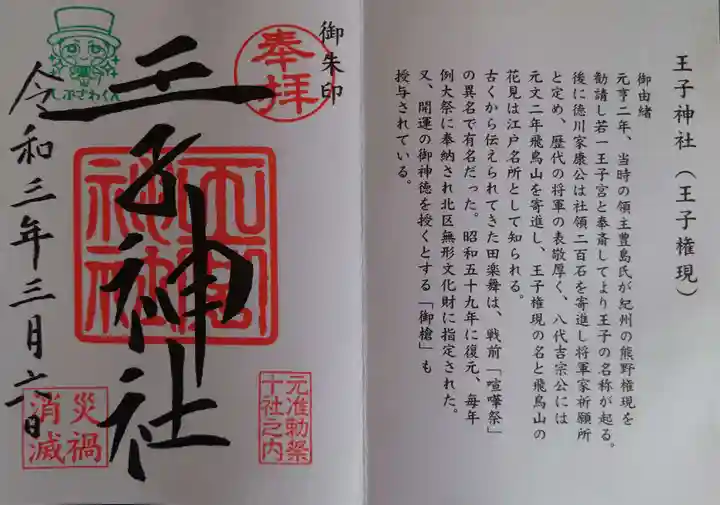 王子神社(王子権現)
御由緒
元亨二年、当時の領主豊島氏が紀州の熊野権現を
勧請し若一王子宮と奉斎してより王子の名称が起る。
後に徳川家康公は社領二百石を寄進し将軍家祈願所
と定め、歴代の将軍の表敬厚く、八代吉宗公には
元文二年飛鳥山を寄進し、王子権現の名と飛鳥山の
花見は江戸名所として知られる。
古くから伝えられてきた田楽舞は、戦前「喧嘩祭」
の異名で有名だった。昭和五十九年に復元、毎年
例大祭に奉納され北区無形文化財に指定された。
又、開運の御神徳を授くとする「御槍」も
授与されている。
御朱印
奉拝
王子神社
王子神社
元准勅祭
十社之内
しぶさわくん
令和三年三月六日
災禍
消滅